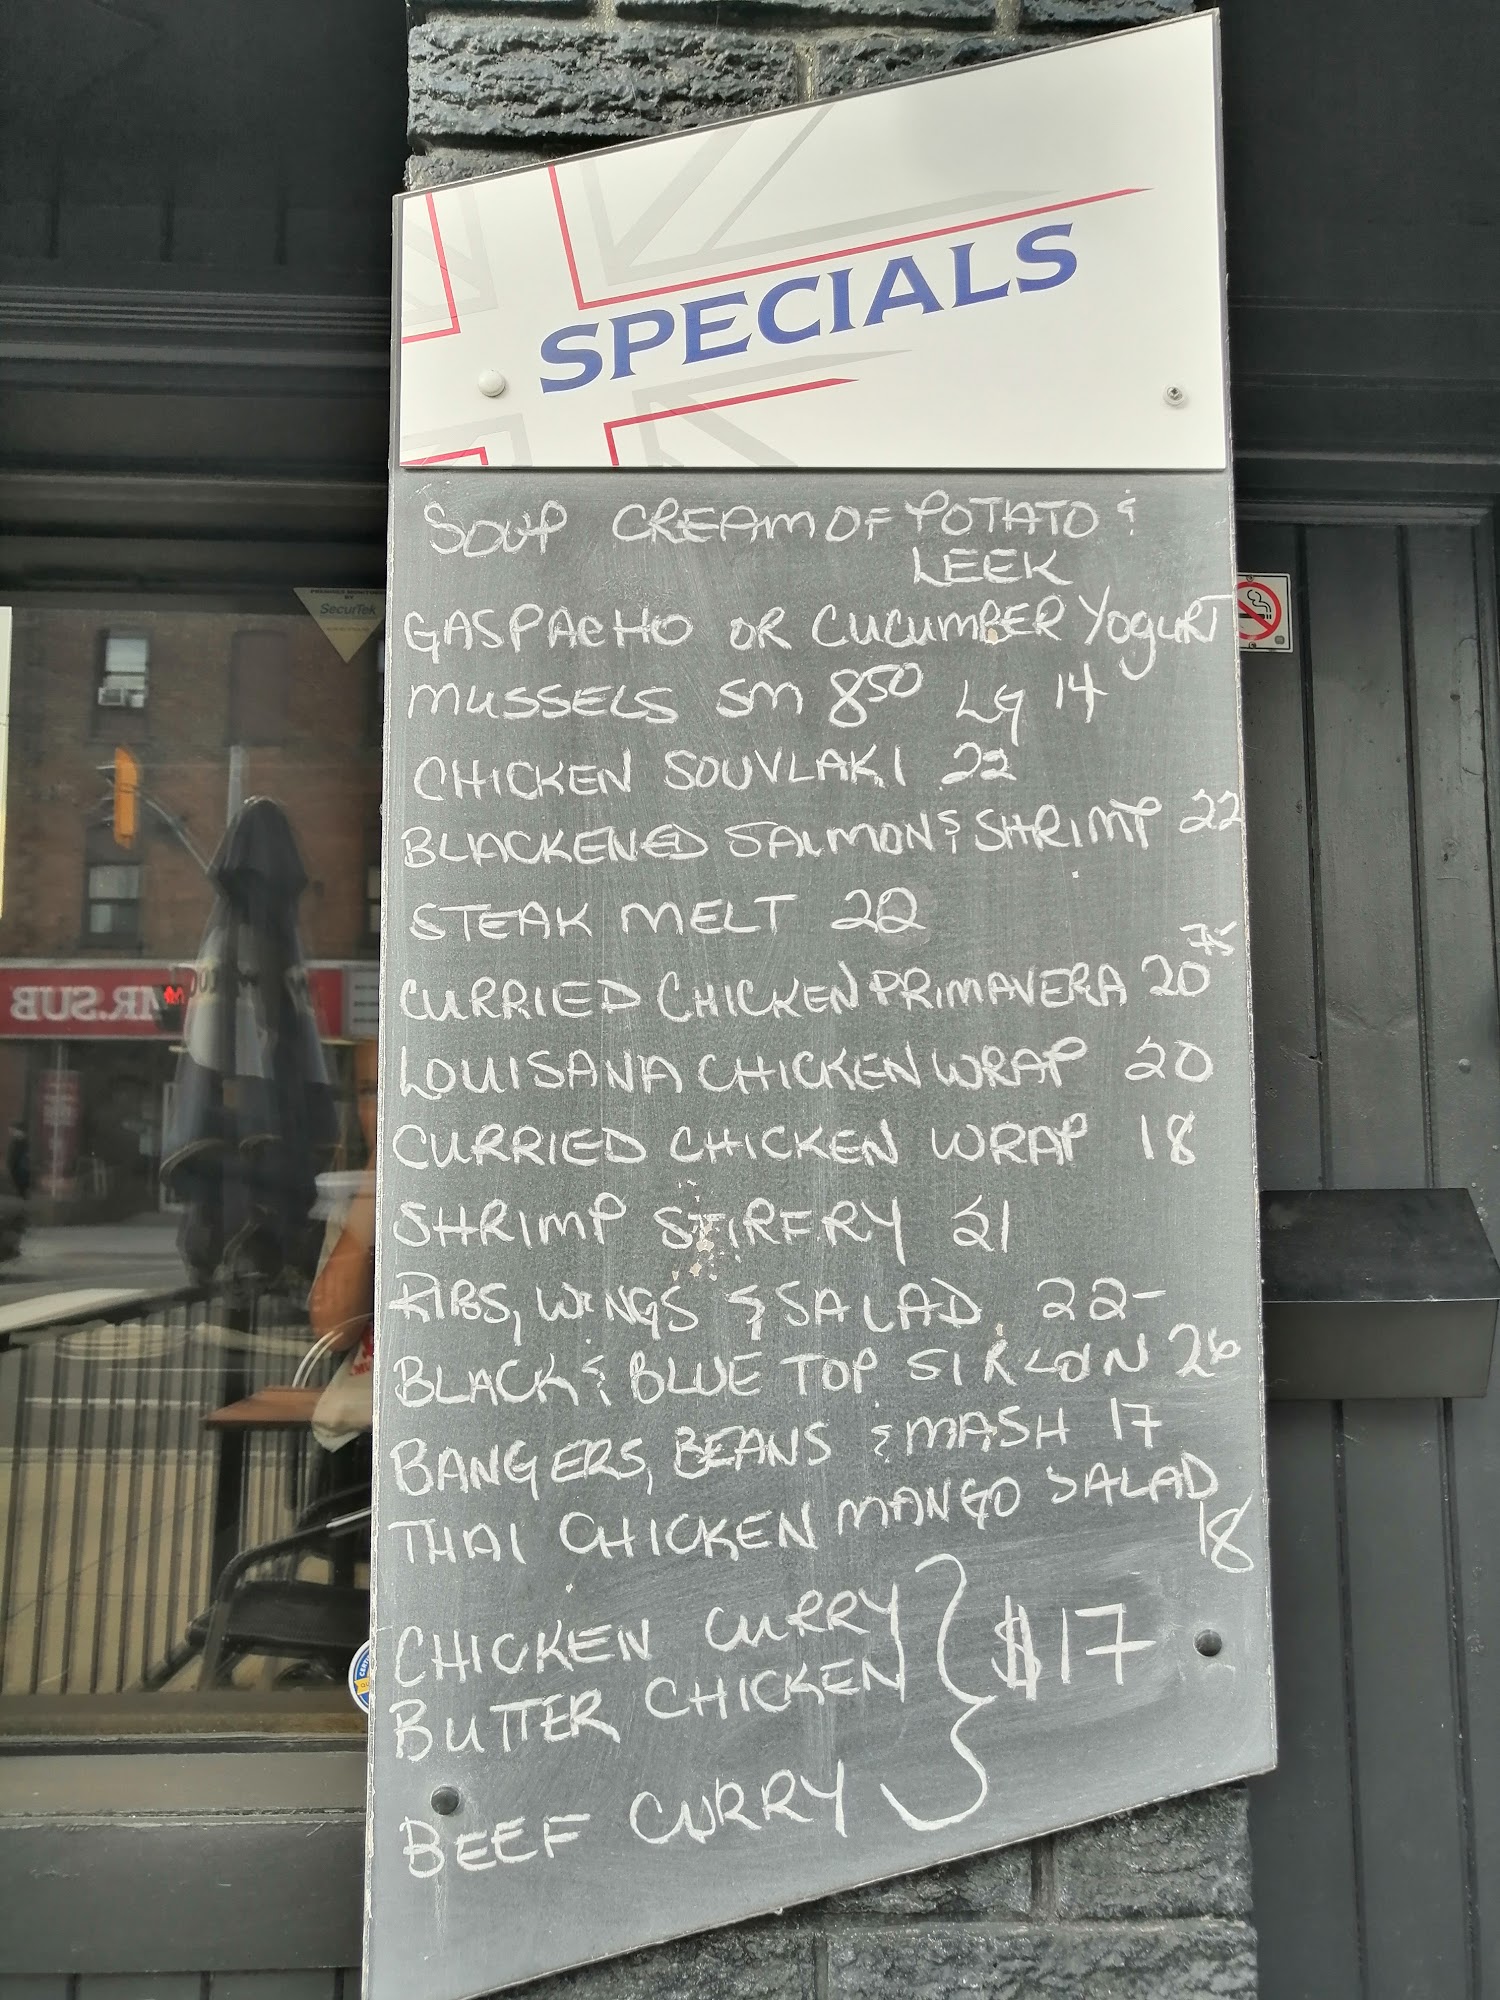 SPECIALS
SOUP CREAM OF POTATO &
LEEK
GASPACHO OR CUCUMBER YOGURT
MUSSELS SM 8⁵⁰ LG 14
CHICKEN SOUVLAKI 22
BLACKENED SALMON & SHRIMP 22
STEAK MELT 22
CURRIED CHICKEN PRIMAVERA 20⁷⁵
LOUISANA CHICKEN WRAP 20
CURRIED CHICKEN WRAP 18
SHRIMP STIRFRY 21
RIBS, WINGS & SALAD 22-
BLACK & BLUE TOP SIRLOIN 26
BANGERS, BEANS & MASH 17
THAI CHICKEN MANGO SALAD
18
CHICKEN CURRY
BUTTER CHICKEN
BEEF CURRY
$17
SecurTek
MR.SUB